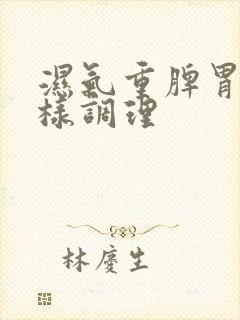 濕氣重脾胃
樣調理
林慶生